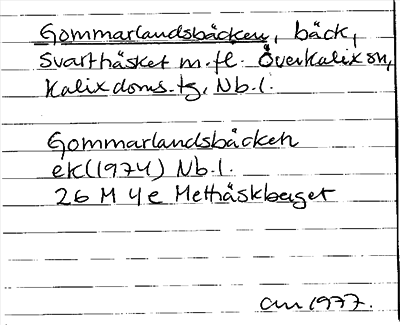 Gommarlandsbäcken, bäck,
Svarthäsket m.fl. Överkalix sn,
Kalix doms.tg, Nb.l.
Gommarlandsbäcken
ek (1974) Nb.l.
26 M 4e Metträskberget
1977.